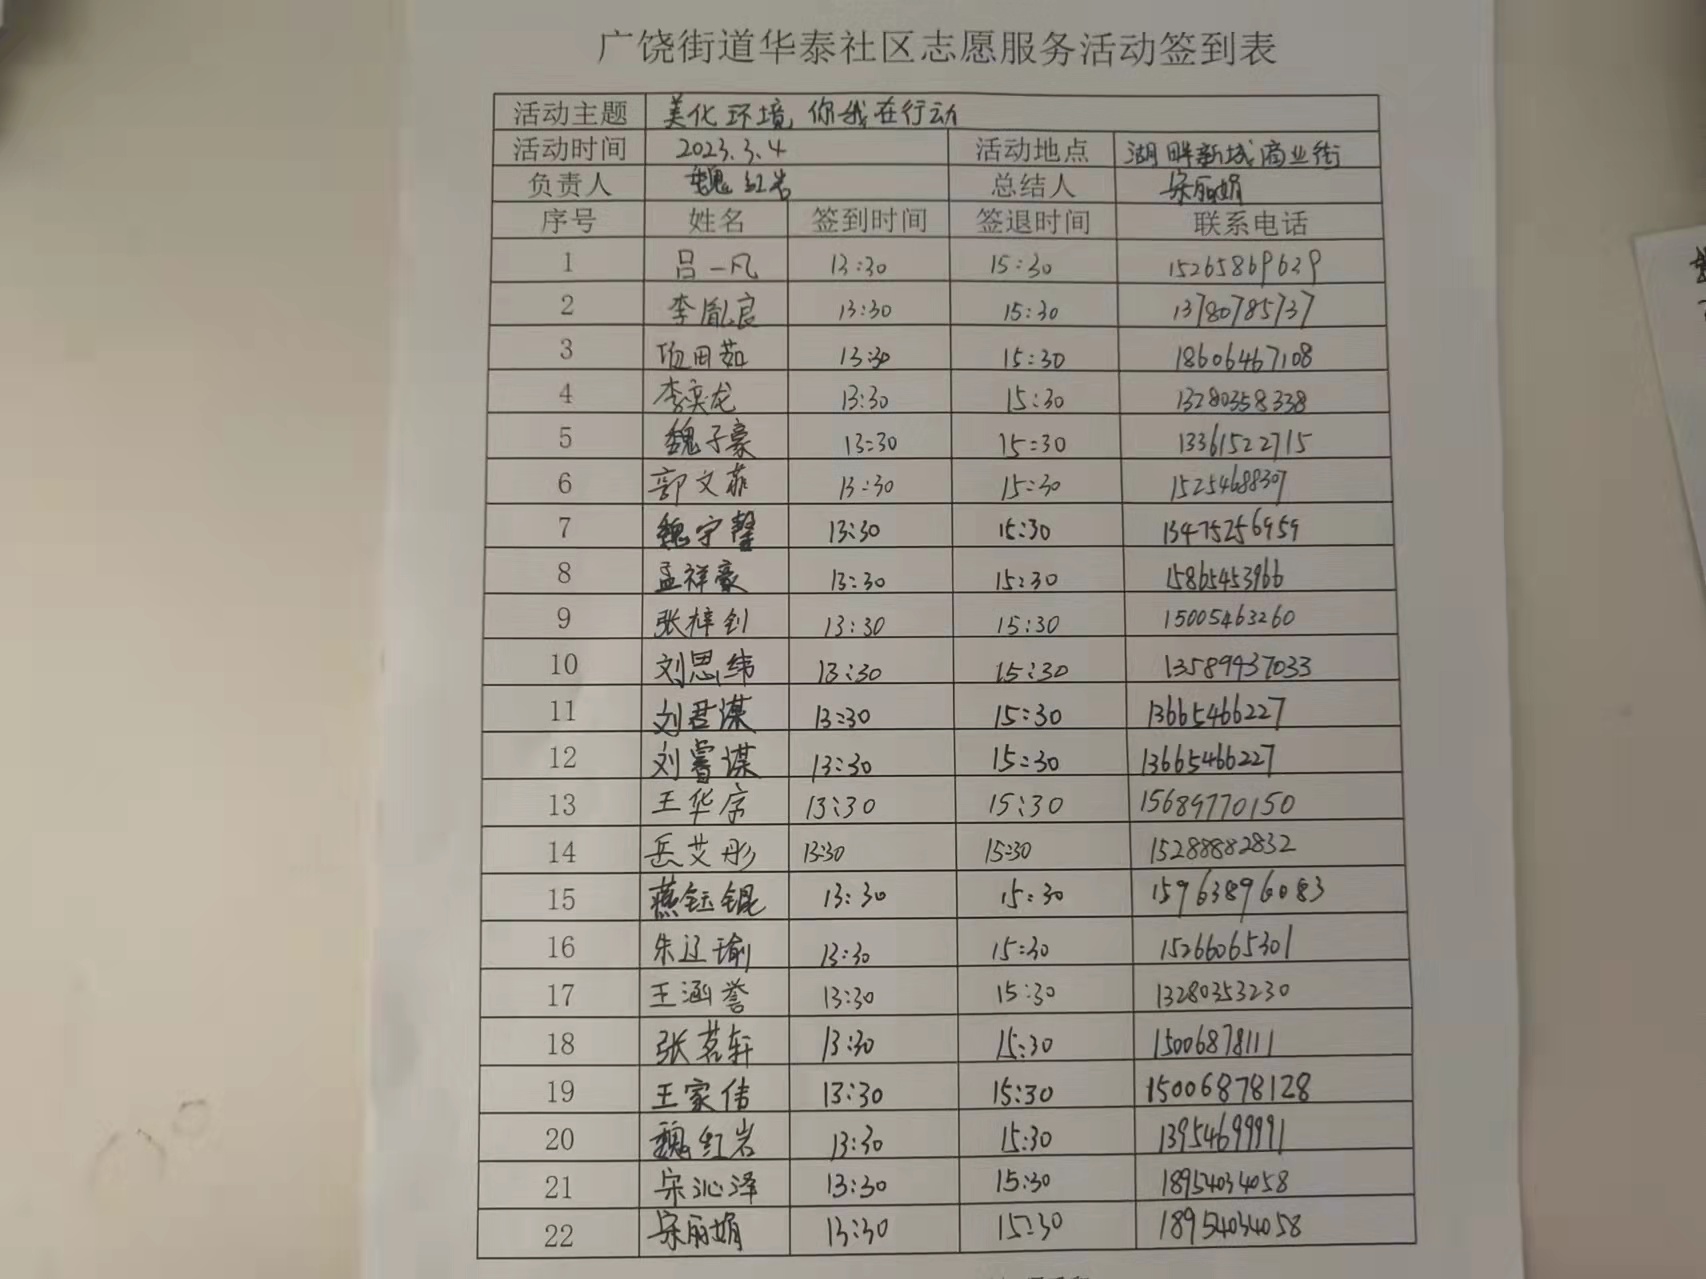 广饶街道华泰社区志愿服务活动签到表
活动主题 美化环境,你我在行动
活动时间 2023.3.4 活动地点 湖畔新城商业街
负责人 魏红岩 总结人 宋丽娟
序号 姓名 签到时间 签退时间 联系电话
1 吕一凡 13:30 15:30 15265869629
2 李胤良 13:30 15:30 13780785737
3 田茹 13:30 15:30 18606467108
4 李奕龙 13:30 15:30 13280358338
5 魏子豪 13:30 15:30 13361522715
6 郭文菲 13:30 15:30 15254688307
7 魏宇馨 13:30 15:30 13475256959
8 孟祥豪 13:30 15:30 15865453966
9 张梓钊 13:30 15:30 15005463260
10 刘思纬 13:30 15:30 13589937033
11 刘君谋 13:30 15:30 13665466227
12 刘睿谋 13:30 15:30 13665466227
13 王华 13:30 15:30 15689770150
14 岳艾彤 13:30 15:30 15288882832
15 燕钰锟 13:30 15:30 15963896083
16 朱辽瑜 13:30 15:30 15266065301
17 王涵誉 13:30 15:30 13280353230
18 张茗轩 13:30 15:30 15006878111
19 王家倩 13:30 15:30 15006878128
20 魏红岩 13:30 15:30 13954699991
21 宋沁泽 13:30 15:30 18954034058
22 宋丽娟 13:30 15:30 18954034058